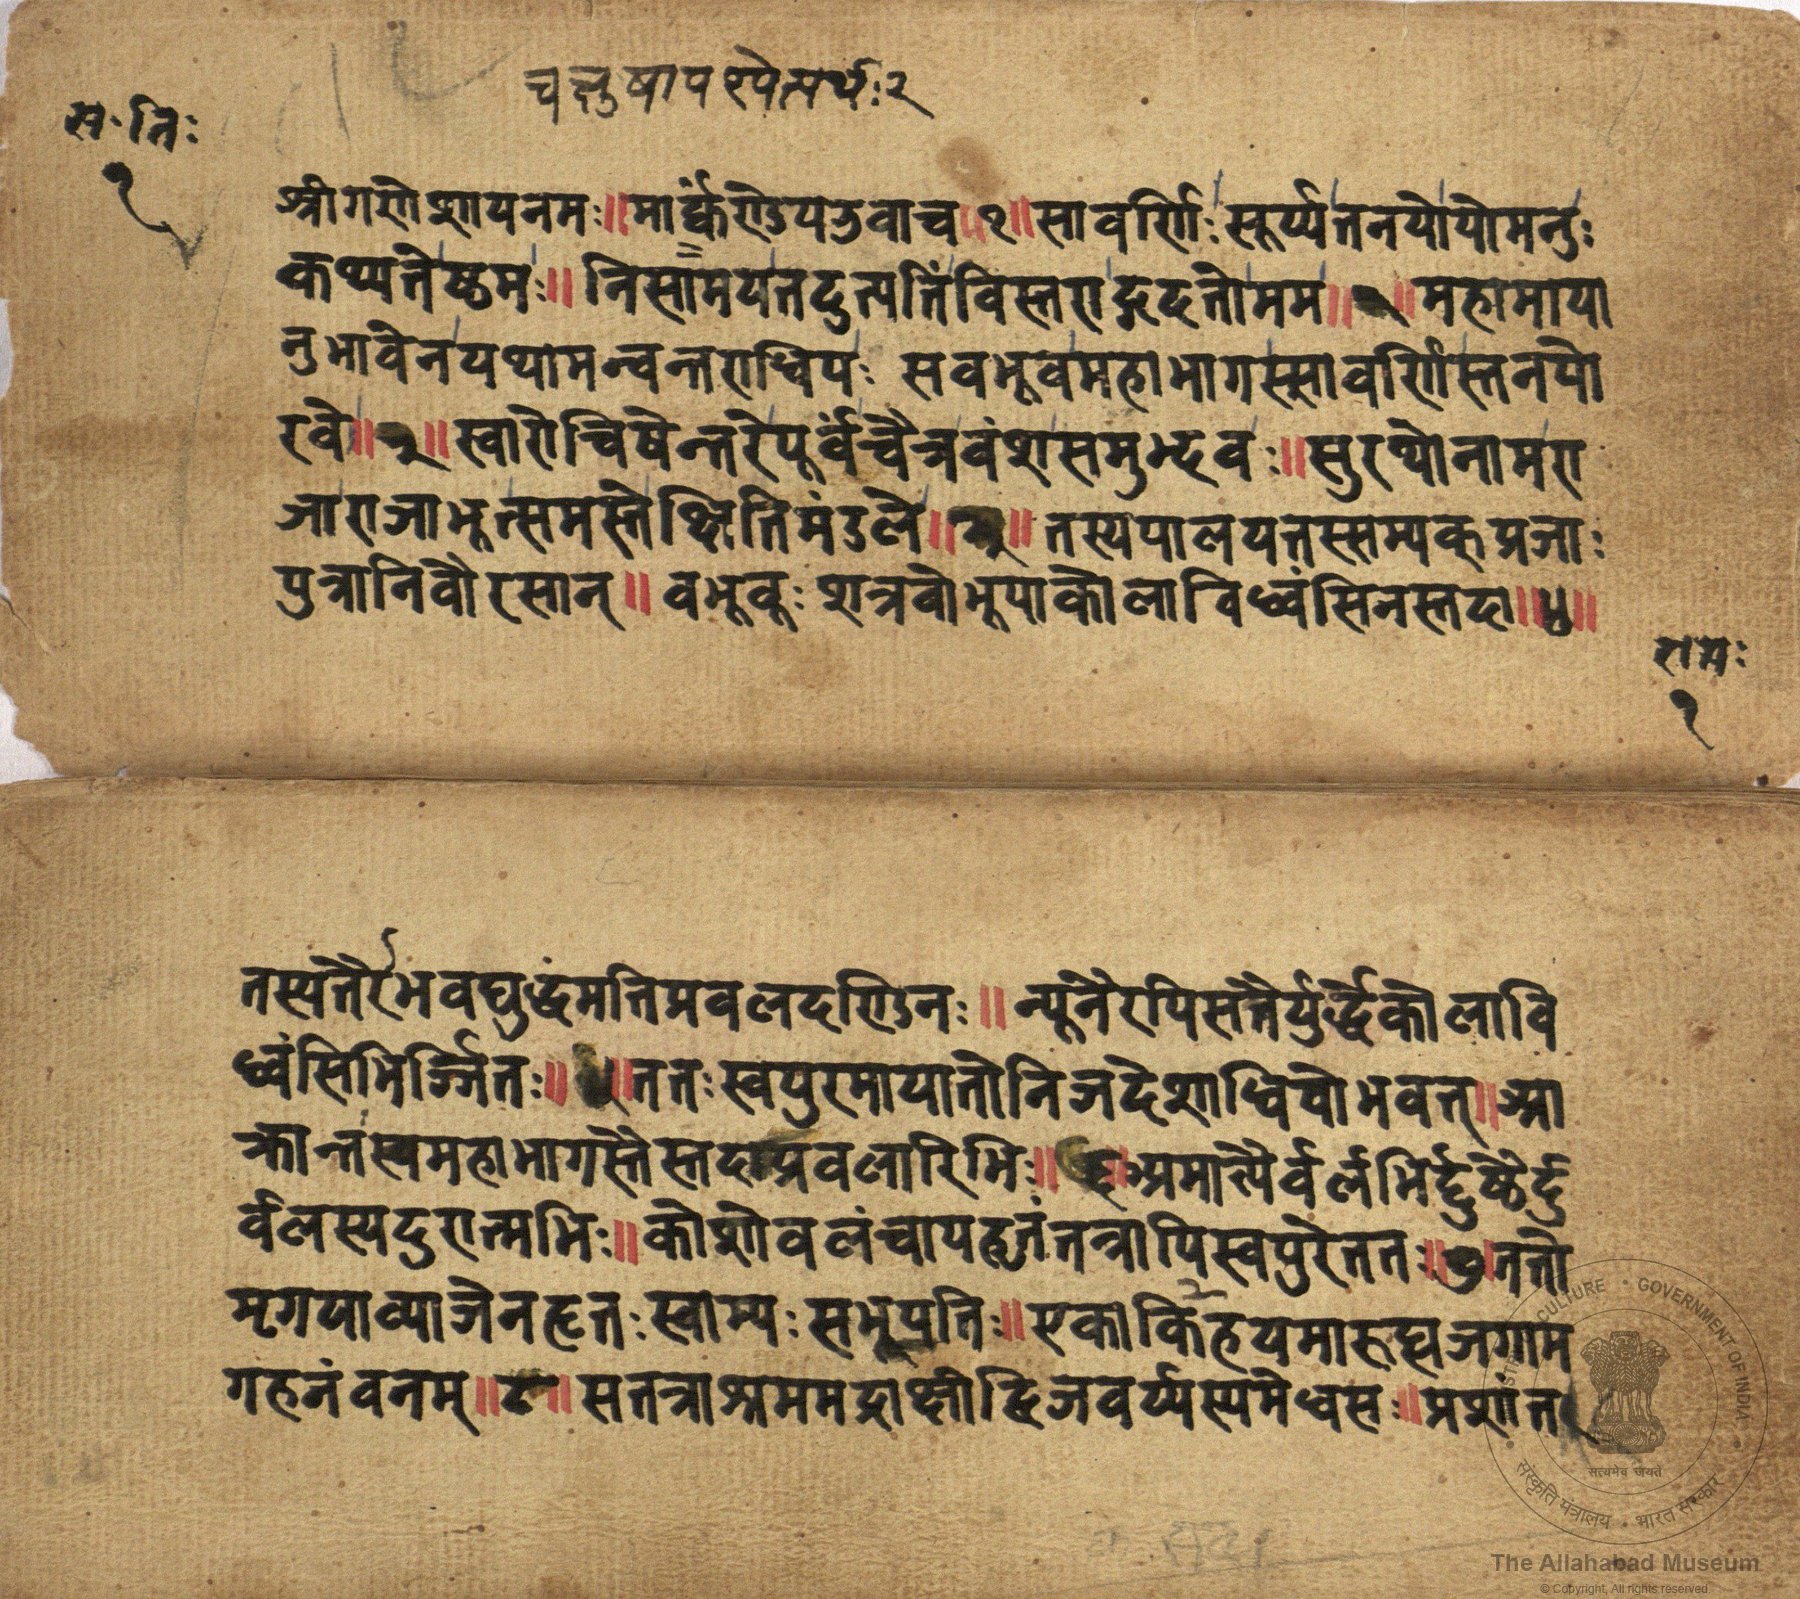 चक्षुषापश्येत्यर्थः२
स॰ति॰
१
श्रीगणेशायनमः॥मार्क्कण्डेयउवाच॥१॥सावर्णिःसूर्य्यतनयोयोमनुः
कथ्यतेष्टमः॥निसामयतदुत्पत्तिंविस्तराद्गदतोमम॥२॥महामाया
नुभावेनयथामन्वन्तराधिपः सवभूवमहाभागस्सावर्णिस्तनयो
रवे॥३॥स्वारोचिषेन्तरेपूर्वंचैत्रवंशसमुद्भवः॥सुरथोनामरा
जाराजाभूत्समस्तेक्षितिमंडले॥४॥तस्यपालयतस्सम्यक्प्रजाः
पुत्रानिवौरसान्॥वभूवूःशत्रवोभूपाकोलाविध्वंसिनस्तदा॥५॥
रामः
१
तस्यतैरभवद्युद्धंमतिप्रवलदण्डिनः॥न्यूनैरपिसतैर्युर्द्धेकोलावि
ध्वंसिभिर्ज्जितः॥५॥ततःस्वपुरमायातोनिजदेशाधिपोभवत्॥आ
क्रान्तस्यमहाभागस्तैस्तदाप्रवलारिभिः॥६॥अमात्यैर्वर्लभिर्दुष्टैर्दु
र्वलस्यदुरात्मभिः॥कोशोवलंचापहृतंतत्रापिस्वपुरेततः॥७॥ततो
मृगयाव्याजेनहृतःस्वाम्यःसभूपतिः॥एकाकिहयमारूह्यजगाम
गहनंवनम्॥८॥सतत्राश्रममद्राक्षीद्द्विजवर्य्यस्यमेधसः॥प्रशांत
MINISTRY OF CULTURE · GOVERNMENT OF INDIA
सत्यमेव जयते
संस्कृति मंत्रालय · भारत सरकार
The Allahabad Museum
© Copyright, All rights reserved